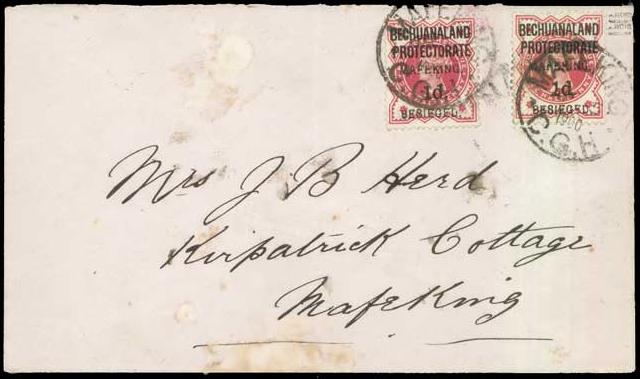 BECHUANALAND
PROTECTORATE
MAFEKING,
1d.
BESIEGED.
BECHUANALAND
PROTECTORATE
MAFEKING,
1d.
BESIEGED.
MAFEKING
C.G.H.
MAFEKING
1900
C.G.H.
Mrs J B Herd
Kirpatrick Cottage
Mafeking